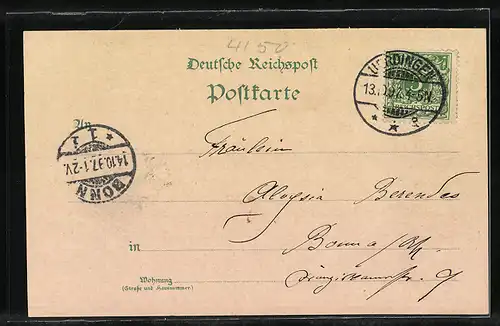 4150
Deutsche Reichspost
Postkarte
UERDINGEN
13.10.97.4-5N.
* * a
5
REICHSPOST
An
Fräulein
Aloysia Berendes
in Bonn a/Rh.
Wohnung
(Straße und Hausnummer)
BONN
14.10.97.1-2V.
* 1 1